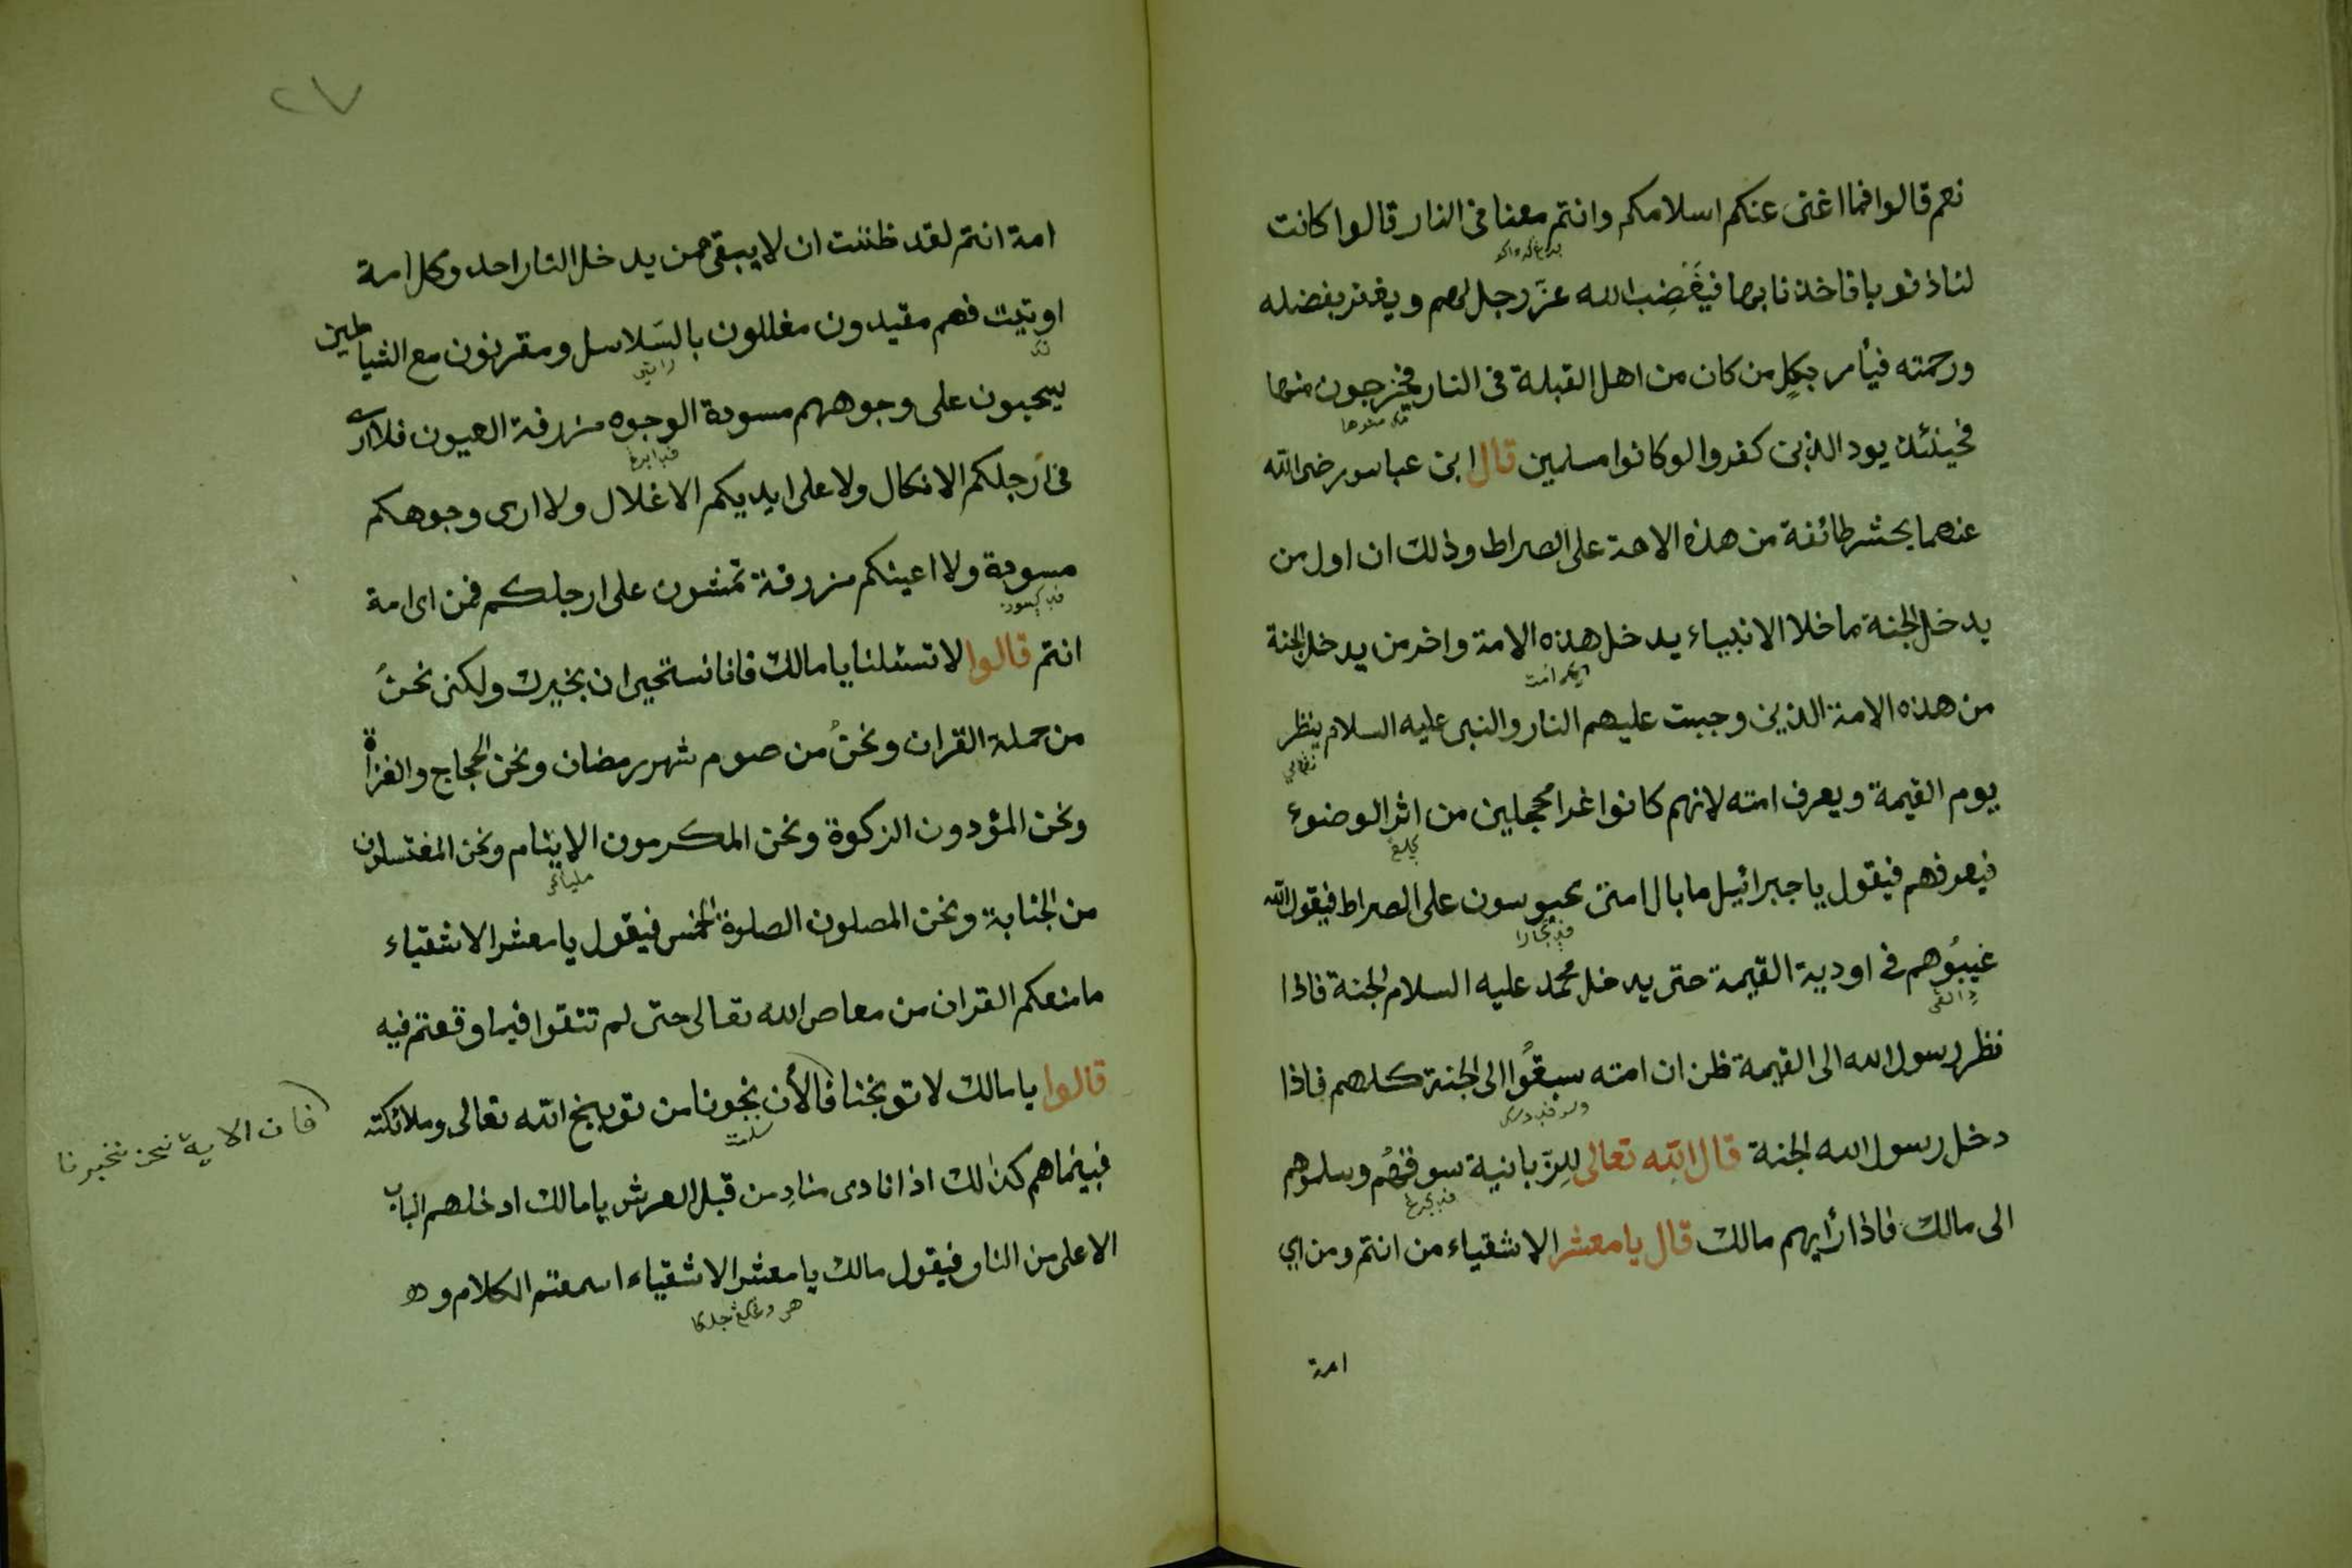 نعم قالوا فما اغنى عنكم اسلامكم وانتم معنا فى النار قالوا كانت
لنا ذنوبا فاخذنا بها فيَغْضِب الله عزّ وجل لهم ويغفر بفضله
ورحمته فيأمر بكلٍ من كان من اهل القبلة فى النار فيخرجون منها
فحينئذ يود الذين كفروا لو كانوا مسلمين قال ابن عباس رضى الله
عنهما يحشر طائفة من هذه الامة على الصراط وذلك ان اول من
يدخل الجنة ما خلا الانبياء يدخل هذه الامة واخر من يدخل الجنة
من هذه الامة الذين وجبت عليهم النار والنبى عليه السلام ينظر
يوم القيمة ويعرف امته لانهم كانوا غرا محجلين من اثر الوضوء
فيعرفهم فيقول يا جبرائيل ما بال امتى محبوسون على الصراط فيقول الله
غيبُوهم فى اودية القيمة حتى يدخل محمد عليه السلام الجنة فاذا
نظر رسول الله الى القيمة ظن ان امته سبقُوا الى الجنة كلهم فاذا
دخل رسول الله الجنة قال الله تعالى للزّبانية سوقهُم وسلموهم
الى مالك فاذا رأيهم مالك قال يا معشر الاشقياء من انتم ومن اي
امة
٢٧
امة انتم لقد ظننت ان لا يبقى ممن يدخل النار احد وكل امة
اوتيت فهم مقيدون مغللون بالسّلاسل ومقرنون مع الشياطين
يسحبون على وجوههم مسودة الوجوه مزرقة العيون فلا ارى
فى ارجلكم الانكال ولا على ايديكم الاغلال ولا ارى وجوهكم
مسودة ولا اعينكم مزرقة تمشون على ارجلكم فمن اى امة
انتم قالوا لا تسئلنا يا مالك فانا نستحير ان نخبرك ولكن نحنُ
من حملة القران ونحنُ من صوم شهر رمضان ونحن الحجاج والغزاة
ونحن المؤدون الزكوة ونحن المكرمون الايتام ونحن المغتسلون
من الجنابة ونحن المصلون الصلوة الخمس فيقول يا معشر الاشقياء
ما منعكم القران من معاصى الله تعالى حتى لم تتقوا فيما وقعتم فيه
قالوا يا مالك لا توبخنا فالأن نجونا من توبيخ الله تعالى وملائكته
فان الاية نحن نخبرنا
فبينما هم كذلك اذا نادى منادٍ من قبل العرش يا مالك ادخلهم الباب
الاعلى من النار فيقول مالك يا معشر الاشقياء اسمعتم الكلام وهو